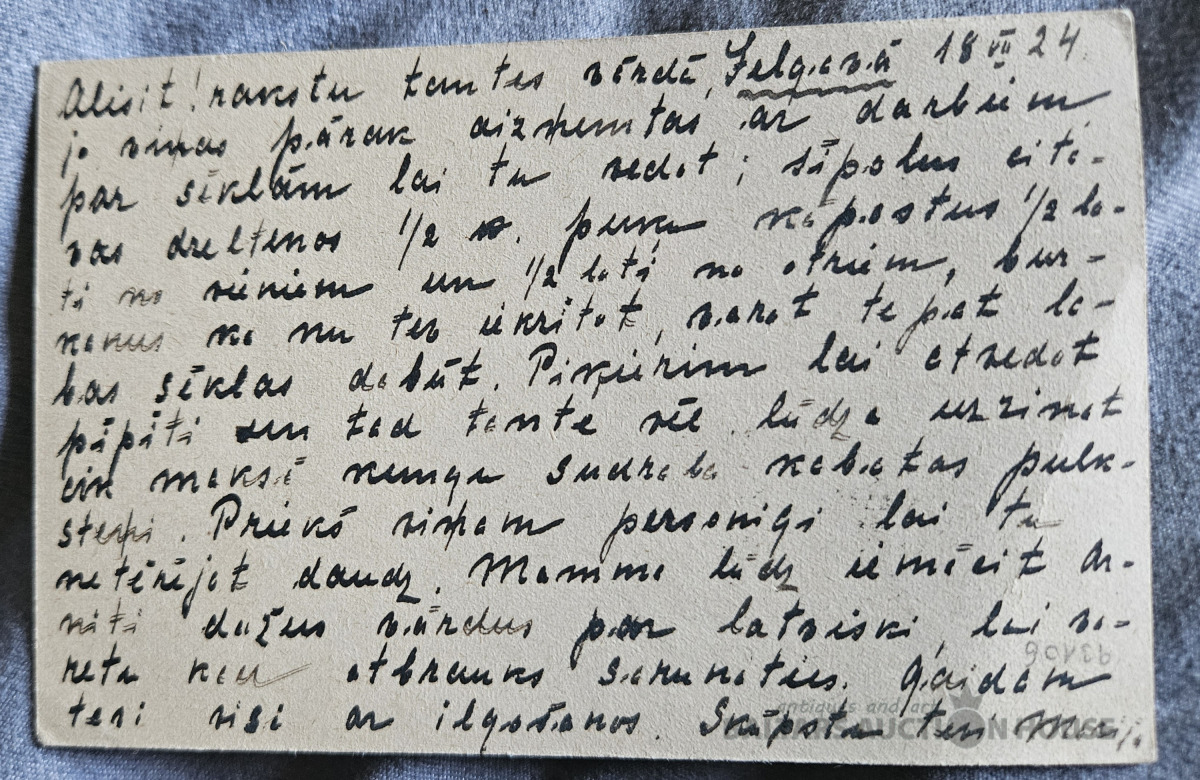 Alisit! rakstu tantes vārdā, Jelgavā 18 VII 24.
jo viņas pārak aizņemtas ar darbiem
par sēklām lai tu vedot; sīpolus citi-
vas dzeltenos 1/2 perku kāpostus 1/2 lo-
ti no vieniem un 1/2 loti no otriem, bur-
kanus ka nu tev iekrītot, varot tepat la-
bas sēklas dabūt. Piķierim lai atvedot
pīpīti un tad tante vēl lūdza uzzinat
cik maksā kungu sudraba kabatas pulk-
steņi. Priekš viņam personigi lai tu
netērējot daudz. Mamma lūdz iemācīt Ar-
niti dažus vārdus par latviski, lai va-
retu kad atbrauks sarunaties. Gaidam
tevi visi ar ilgošanos. Skūpstu tevi
93106
antiques and art
AUCTION HOUSE